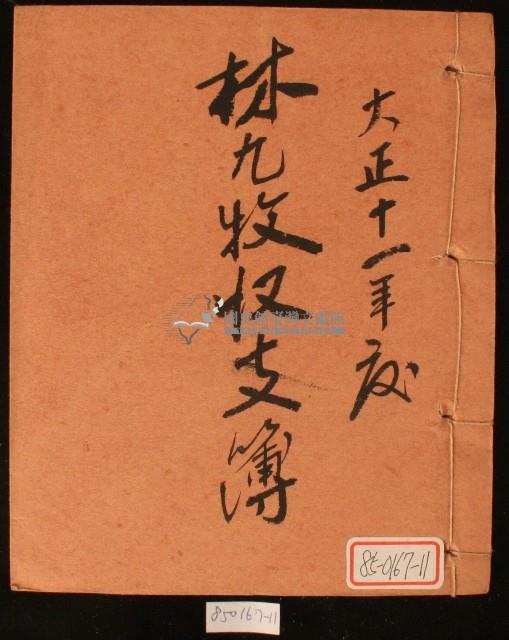 大正十一年度
林九牧收支簿
國立台灣文學館
85-0167-11
850167-11